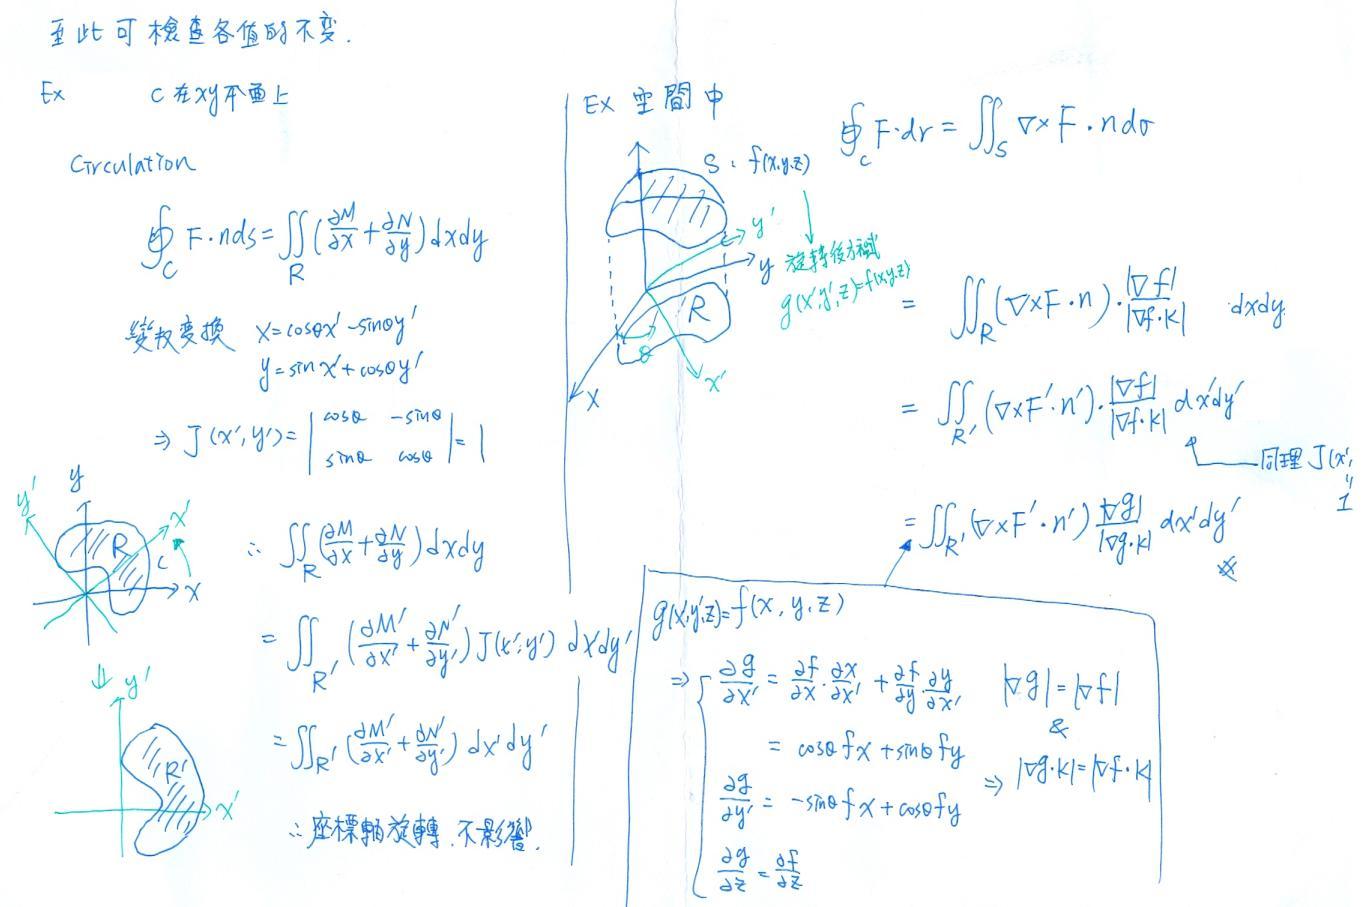 至此可檢查各值的不变.
Ex C在xy平面上
Circulation
∮_C F·nds = ∬_R (∂M/∂x + ∂N/∂y) dxdy
變数变換 x=cosθx'-sinθy'
y=sinx'+cosθy'
⇒ J(x',y') = | cosθ -sinθ | = 1
| sinθ cosθ |
y
y'
x'
R
C
x
∴ ∬_R (∂M/∂x + ∂N/∂y) dxdy
= ∬_R' (∂M'/∂x' + ∂N'/∂y') J(x',y') dx'dy'
⇓ y'
R'
x'
= ∬_R' (∂M'/∂x' + ∂N'/∂y') dx'dy'
∴ 座標軸旋轉.不影響.
EX 空間中
S: f(x,y,z)
y'
y
R
θ
x
x'
旋轉後方程式
g(x',y',z)=f(x,y,z)
∮_C F·dr = ∬_S ∇×F·ndσ
= ∬_R (∇×F·n)·|∇f|/|∇f·k| dxdy
= ∬_R' (∇×F'·n')·|∇f|/|∇f·k| dx'dy'
同理 J(x',
"
1
= ∬_R' (∇×F'·n') |∇g|/|∇g·k| dx'dy' ※
g(x',y',z)=f(x,y,z)
⇒ { ∂g/∂x' = ∂f/∂x·∂x/∂x' + ∂f/∂y·∂y/∂x'
= cosθfx+sinθfy
∂g/∂y' = -sinθfx+cosθfy
∂g/∂z = ∂f/∂z
|∇g|=|∇f|
&
⇒ |∇g·k|=|∇f·k|